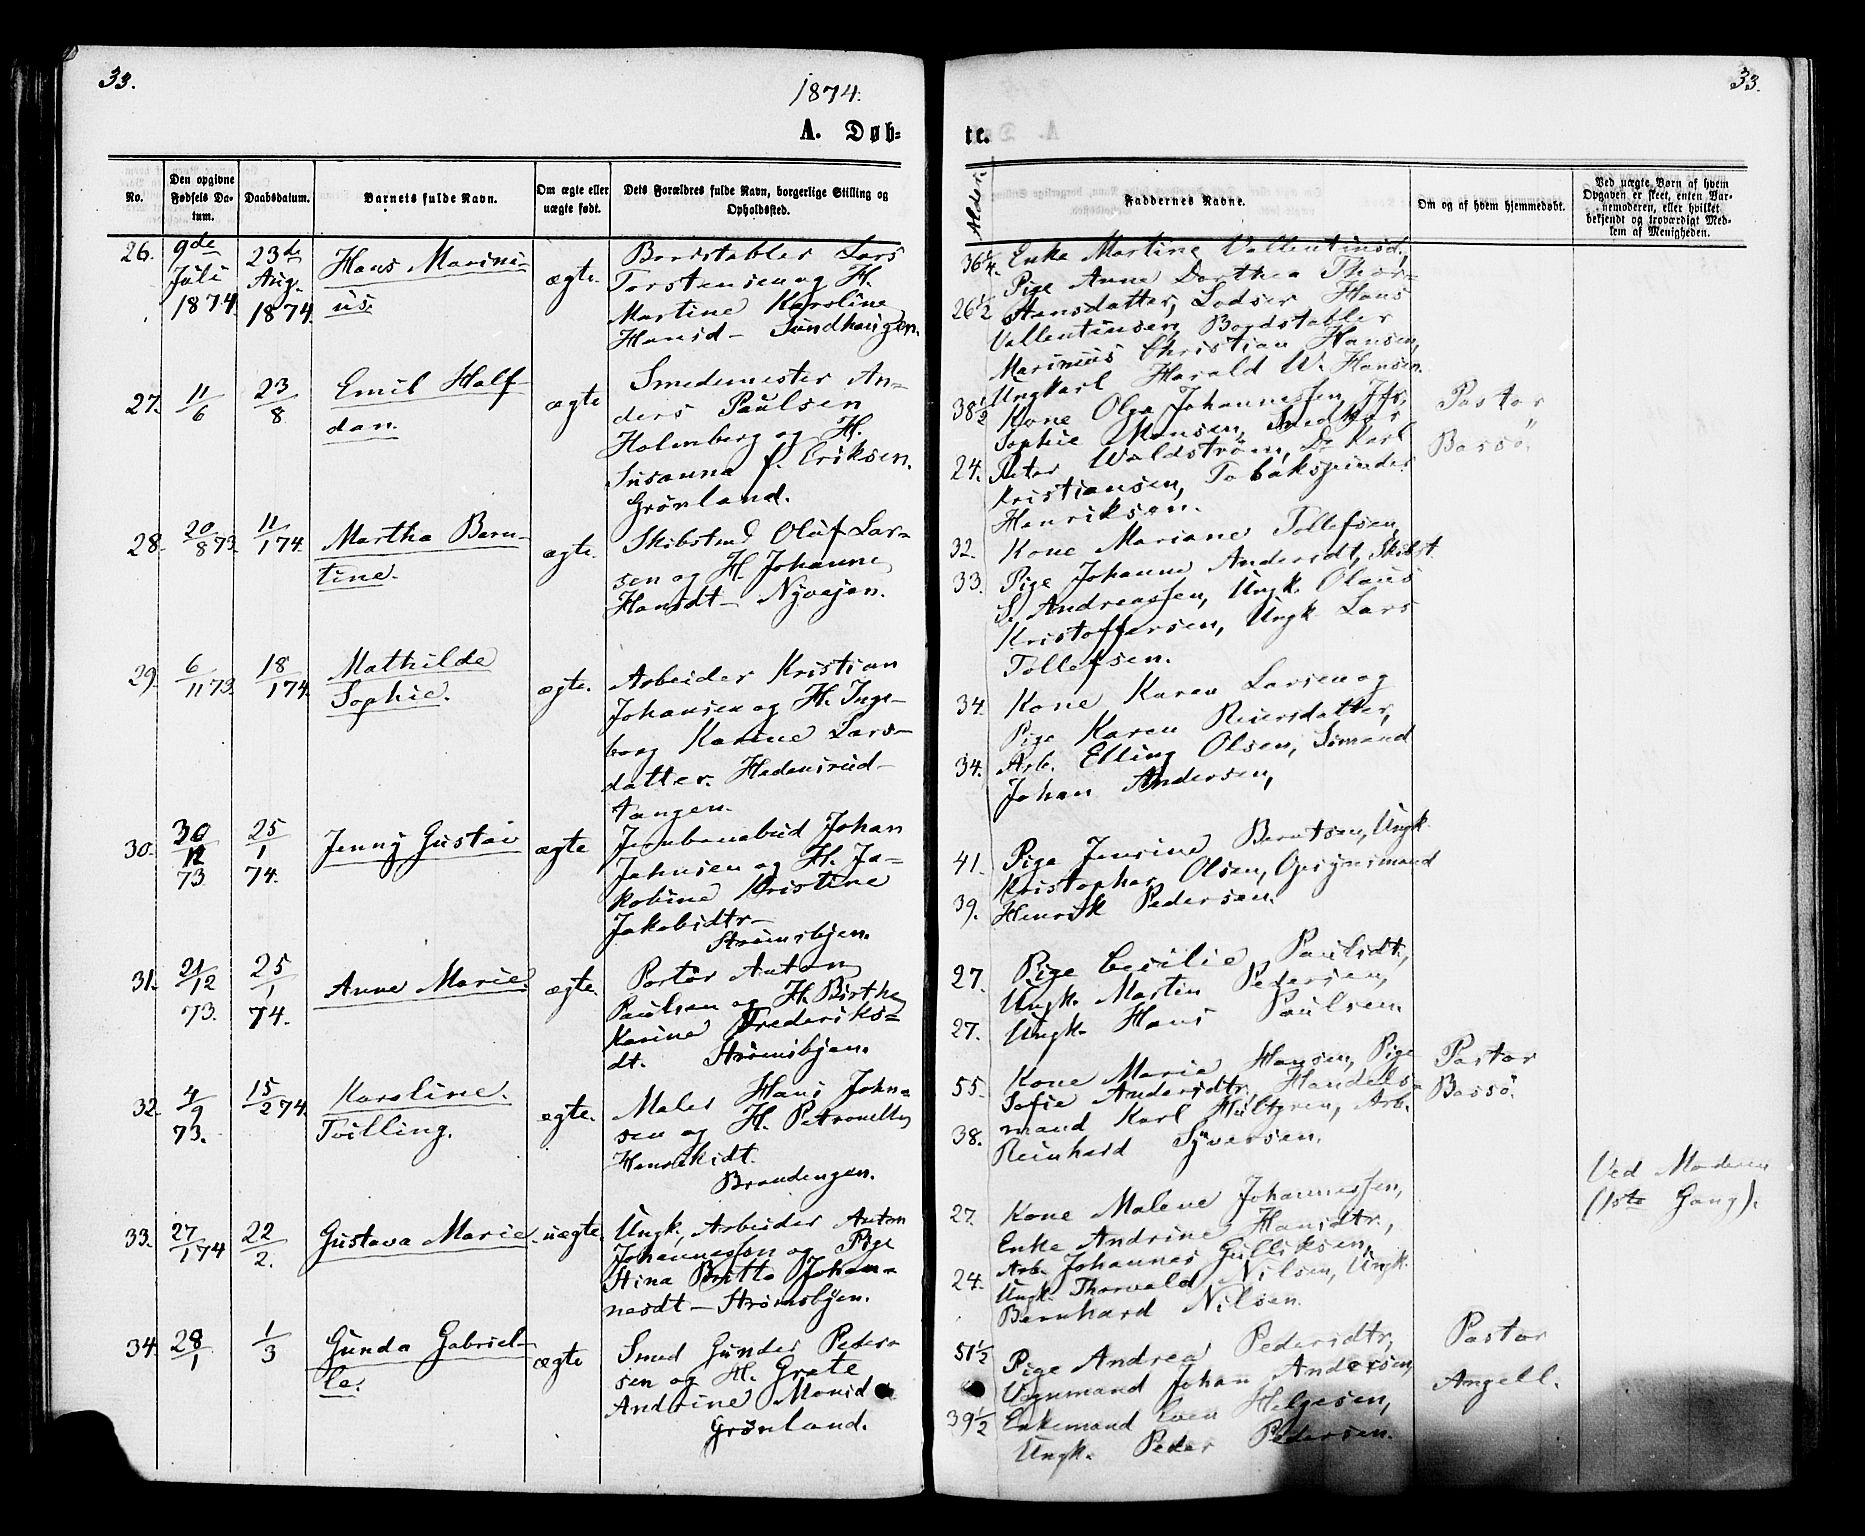 33.
1874.
33.
A. Døb-
te.
No.
Den opgivne Fødsels Da-tum.
Daabsdatum.
Barnets fulde Navn.
Om ægte eller uægte født.
Dets Forældres fulde Navn, borgerlige Stilling og Opholdssted.
Alder.
Faddernes Navne.
Om og af hvem hjemmedøbt.
Ved uægte Børn af hvem Opgaven er skeet, enten Bar-nemoderen, eller hvilket bekjendt og troværdigt Med-lem af Menigheden.
26.
9de
Juli
1874
23de
Aug.
1874.
Hans Marini-
us.
ægte.
Bordstabler Lars
Torstensen og H.
Martine Karoline
Hansd- Sundhaugen.
36 1/4.
26 1/2
Enke Martine Vallentinsd.,
Pige Anne Dorthea Thor-
stensdatter, Lodser Hans
Vallentinsen, Bordstabler
Marinius Christian Hansen,
Ungkarl Harald W. Hansen.
27.
11/6
23/8
Emil Half-
dan.
ægte
Smedemester An-
ders Paulsen
Holmberg og H.
Susanna f. Eriksen.
Grønland.
38 1/2
24.
Kone Olga Johannessen, Jfr.
Sophie Monsen, Smedkar
Peter Waldstrøm, Do Karl
Kristiansen, Tobakspinder
Henriksen.
Pastor
Bassø.
28.
20/8 73.
11/1 74.
Martha Bern-
tine.
ægte.
Skibstmd Oluf Lar-
sen og H. Johanne
Hansdt- Nyvejen.
32.
33.
Kone Mariane Tollefsen,
Pige Johanne Andersdt, Skibst.
S. Andreassen, Ungk. Olaus
Kristoffersen, Ungk. Lars
Tollefsen.
29.
6/11 73.
18/1 74.
Mathilde
Sophie.
ægte.
Arbeider Kristian
Johansen og H. Inge-
borg Karine Lars-
datter. Hedensrud-
tangen.
34.
34.
Kone Karen Larsen og
Pige Karen Reiersdatter,
Arb. Elling Olsen, Sömand
Johan Andersen,
30.
30/12
73
25/1
74.
Jenny Gustav
ægte
Jernbanebud Johan
Johnsen og H. Ja-
kobine Kristine
Jakobsdtr-
Strømsbyen.
41.
39.
Pige Jensine Berntsen, Ungk.
Kristopher Olsen, Opsynsmand
Henrik Pedersen.
31.
21/12
73.
25/1
74.
Anne Marie.
ægte.
Portør Anton
Paulsen og H. Birthe
Karine Frederiks-
dt. Strømsbyen.
27.
27.
Pige Cecilie Paulsdt.,
Ungk. Martin Pedersen,
Ungk. Hans Paulsen.
32.
4/9
73.
15/2 74.
Karoline.
Tvilling.
ægte.
Maler Hans John-
sen og H. Petronelle
Hendrikdt.
Brandengen.
55.
38.
Kone Maria Hansen, Pige
Sofie Andersdtr, Handels-
mand Karl Hultgren, Arb.
Reinhard Syversen.
Pastor
Bassø.
33.
27/1 74
22/2.
Gustava Marie.
uægte.
Ungk. Arbeider Anton
Johannessen og Pige
Stina Britta Johan-
nesdt- Strømsbyen.
27.
24.
Kone Malene Johannessen,
Enke Andrine Hansdtr.,
Arb. Johannes Gulliksen,
Ungk. Thorvald Nilsen, Ungk.
Bernhard Nilsen.
Ved Moderen
(1ste Gang).
34.
28/1
1/3
Gunda Gabriel-
le.
ægte
Smed Gunder Peder-
sen og H. Grete
Andrine Monsd
Grønland.
51 1/2
39 1/2
Pige Andrea Pedersdtr,
Vognmand Johan Andersen,
Enkemand Even Helgesen,
Ungk. Peder Pedersen.
Pastor
Angell.